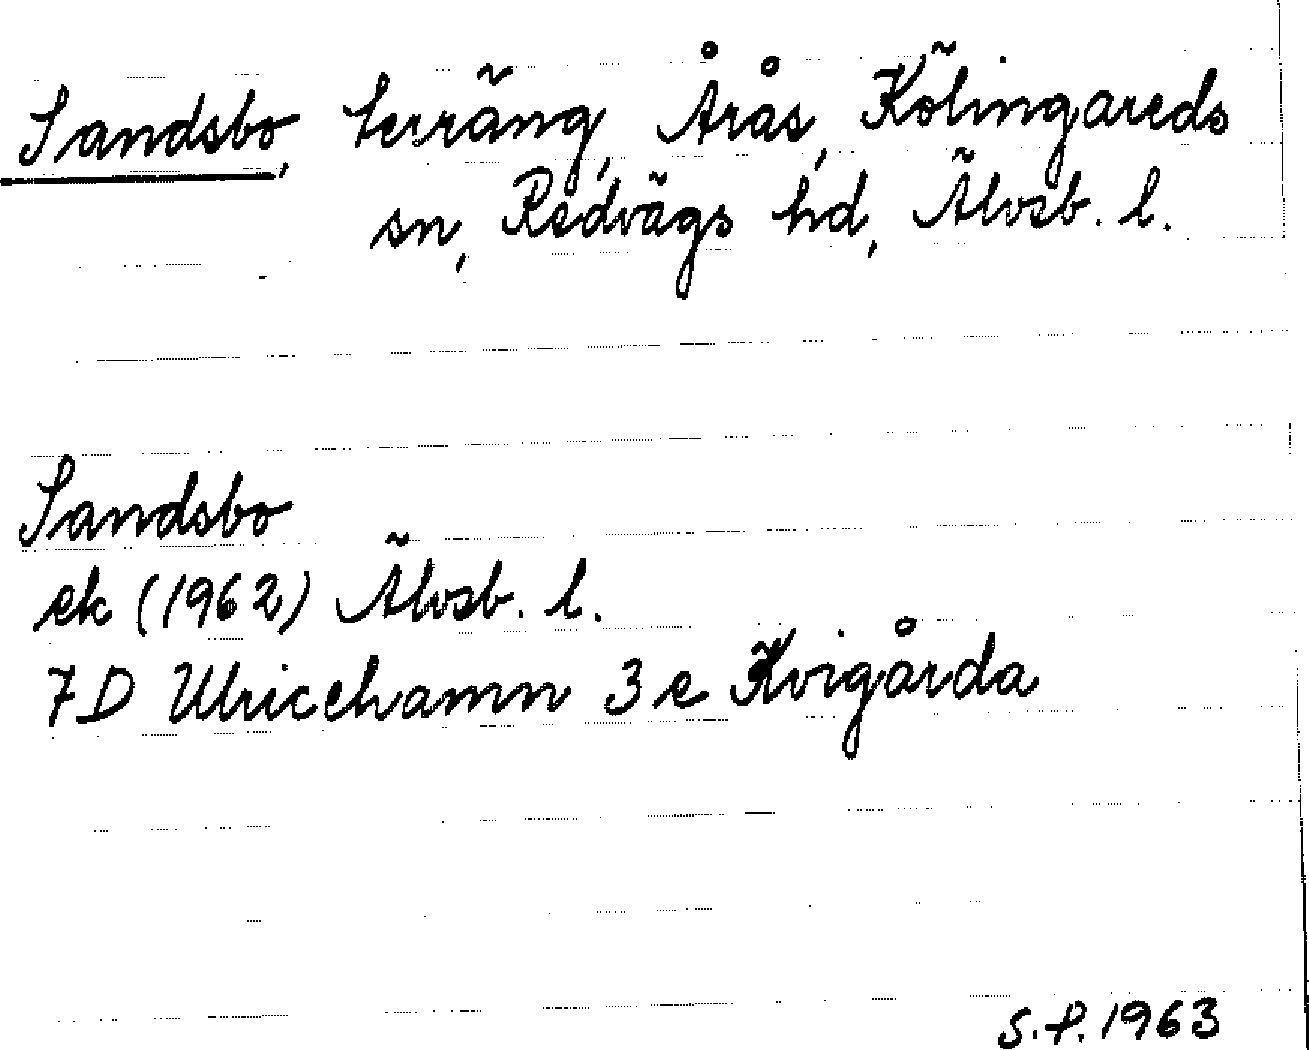 Sandsbo, terräng, Årås, Kölingareds
sn, Redvägs hd, Älvsb. l.
Sandsbo
ek (1962) Älvsb. l.
7D Ulricehamn 3e Kvigårda
S.P. 1963